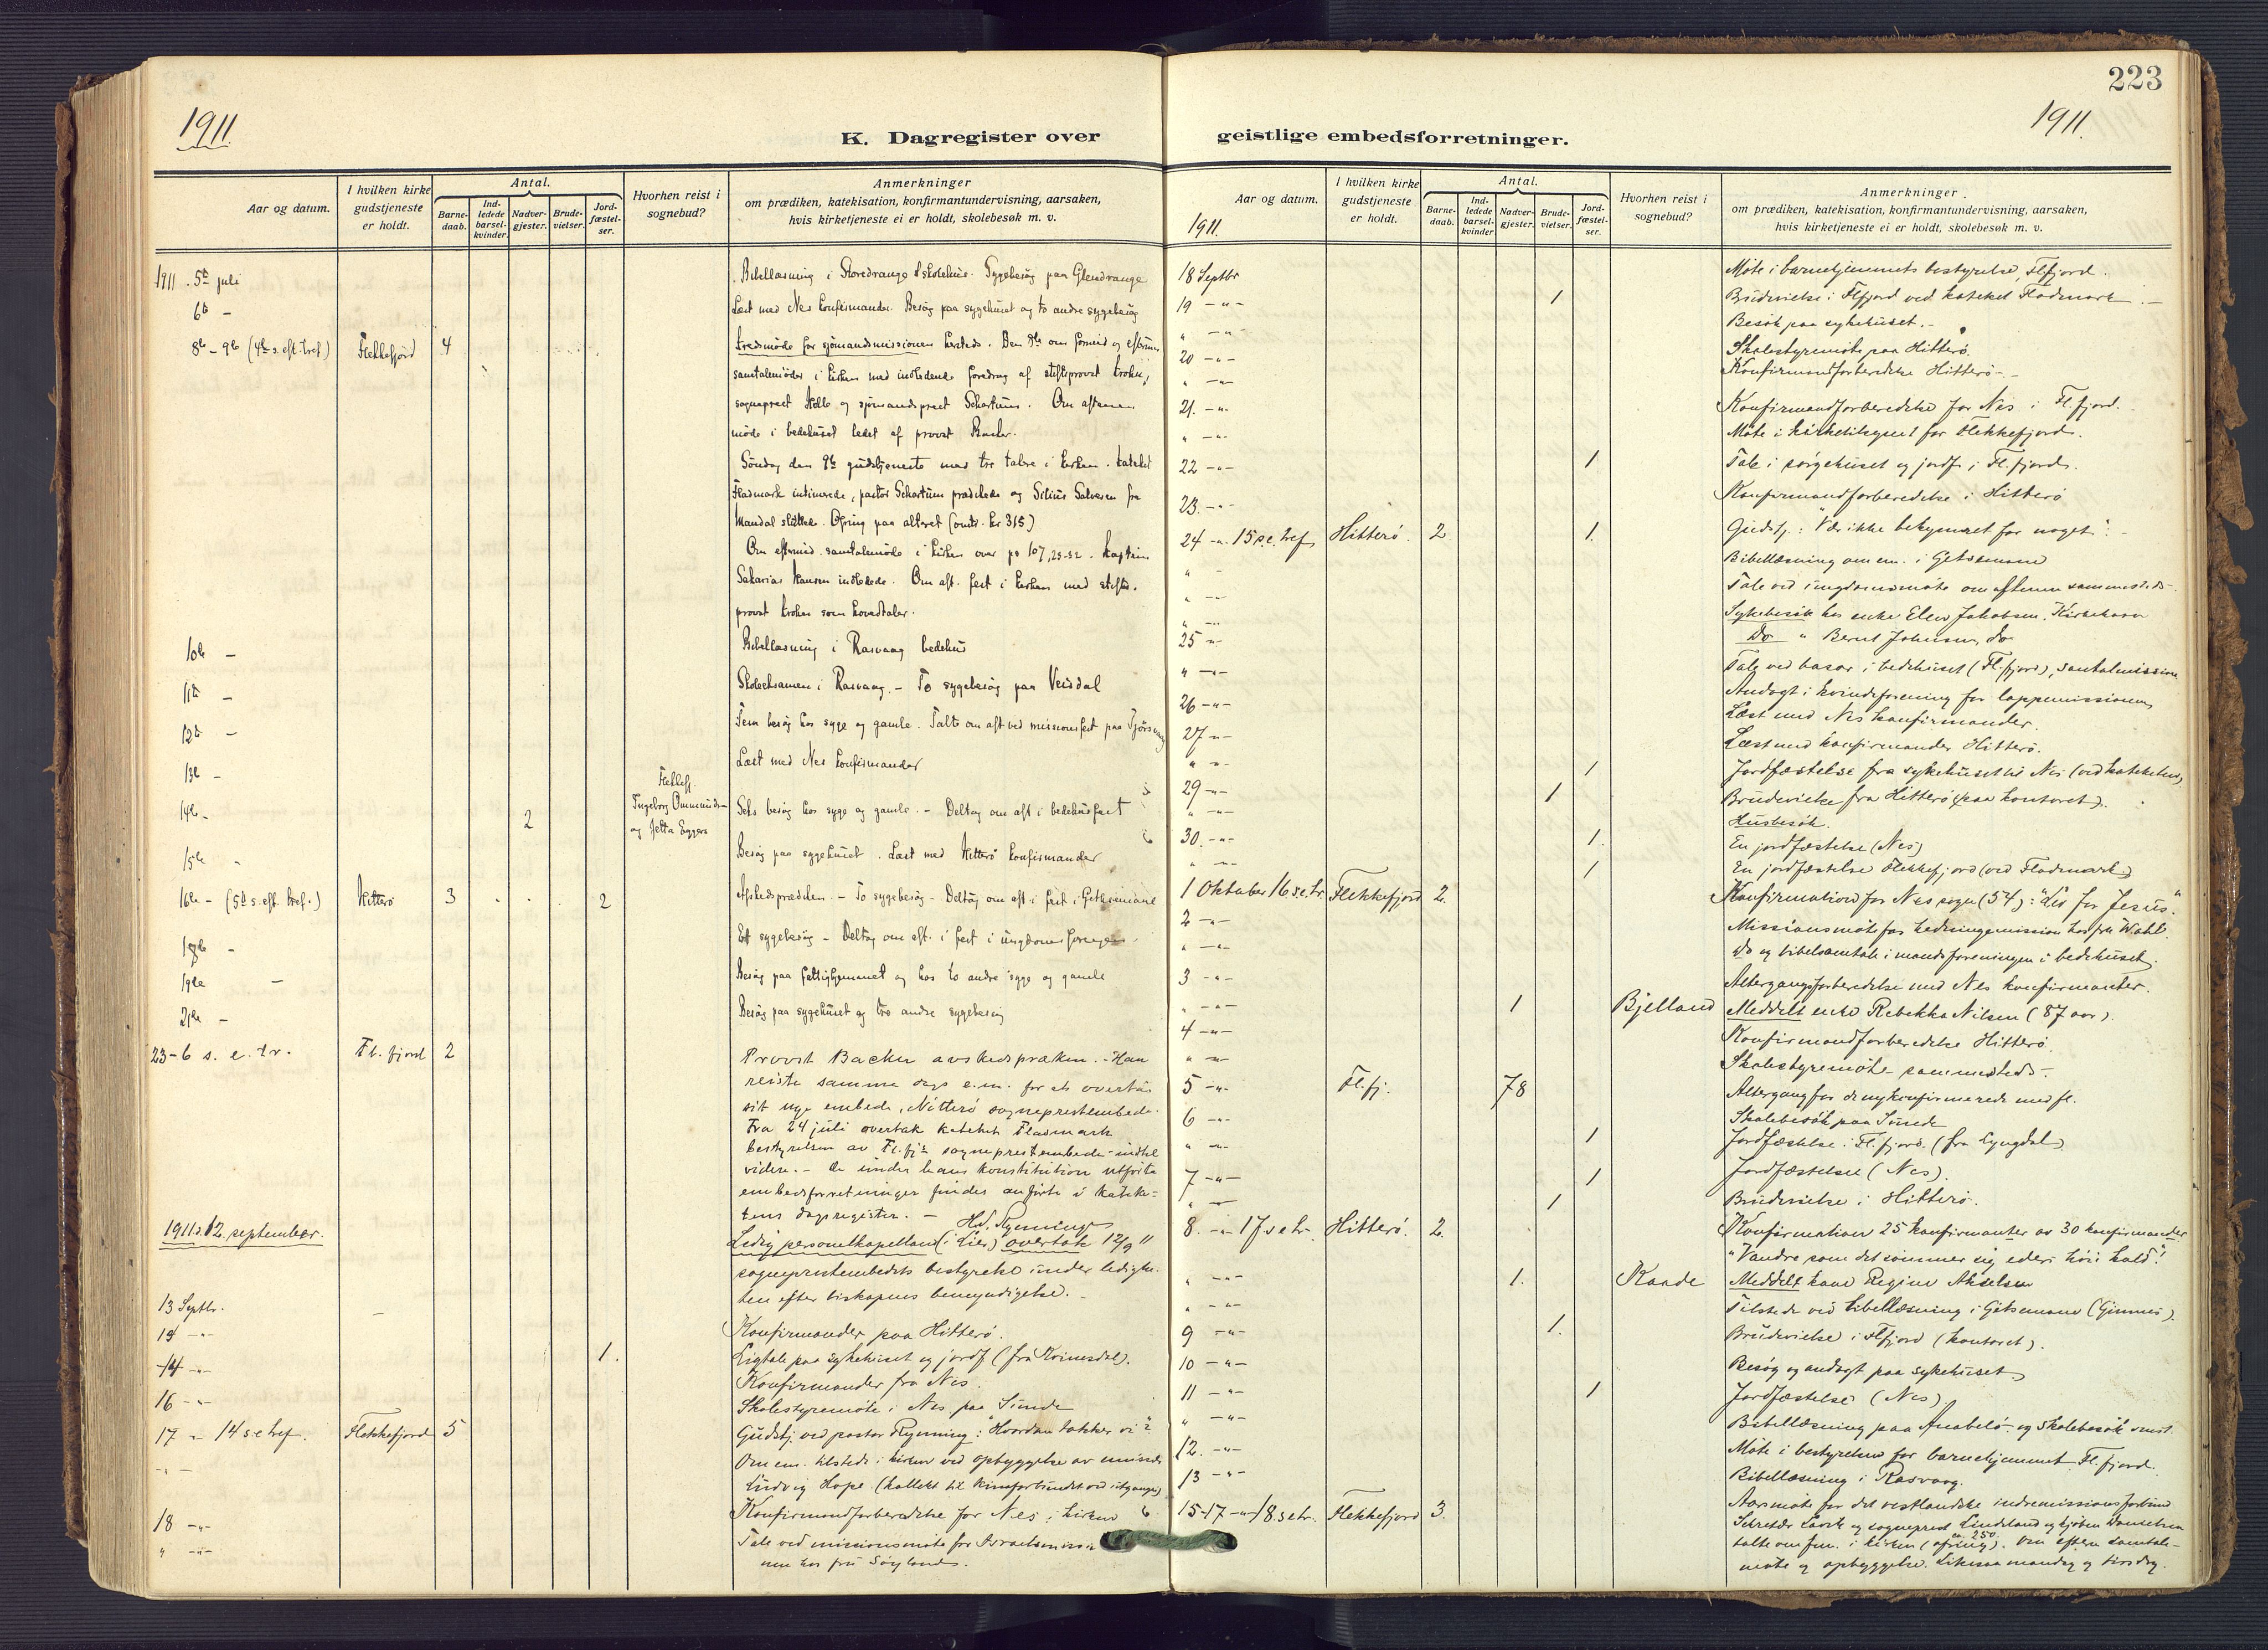 223
1911.
1911.
K. Dagregister over geistlige embedsforretninger.
Aar og datum.
I hvilken kirke gudstjeneste er holdt.
Antal.
Barnedaab.
Indledede barselkvinder.
Nadvergjester.
Brudevielser.
Jordfæstelser.
Hvorhen reist i sognebud?
Anmerkninger
om prædiken, katekisation, konfirmantundervisning, aarsaken,
hvis kirketjeneste ei er holdt, skolebesøk m. v.
1911. 5te juli Bibellæsning i Storedrange skolehus. Sygebesøg paa Glendrange
6te - Læst med Nes konfirmander. Besøg paa sygehuset og to andre sygebesøg
8de - 9de (4de s. eft. tref.) Flekkefjord 4 Kredsmøde for sjømandsmissionen hersteds. Den 8de om formid. og eftermid.
samtalemøder i kirken med indledende foredrag af stiftsprovst Krohn,
sogneprest Helle og sjømandsprest Schartum. Om aftenen
møde i bedehuset ledet af provst Backer.
Søndag den 9de gudstjeneste med tre talere i kirken. Kateket
Fladmark intimerede, pastor Schartum prædikede og Silius Salvesen fra
Mandal sluttede. Ofring paa alteret (omtr. kr 315)
Om eftermid. samtalemøde i kirken over ps 107,23-32. Kaptein
Sakarias Hansen indledede. Om aft. fest i kirken med stifts-
provst Krohn som hovedtaler.
10de - Bibellæsning i Rasvaag bedehus
11te - Skoleeksamen i Rasvaag. - To sygebesøg paa Veisdal
12te - Fem besøg hos syge og gamle. Talte om aft ved missionsfest paa
13de - Læst med Nes konfirmander
14de - 2 Flekkefj. Ingeborg Ommunds- og Jetta Eggers Seks besøg hos syge og gamle. - Deltog om aft i bedehusfest
15de - Besøg paa sygehuset. Læst med Hitterø konfirmander
16de - (5te s. eft. tref.) Hitterø 3 2 Afskedsprædiken. - To sygebesøg - Deltog om aft i fest i Gethsemane
- Et sygebesøg - Deltog om aft. i fest i ungdomsforeningen.
19de - Besøg paa fattighjemmet og hos to andre syge og gamle
21de - Besøg paa sygehuset og tre andre sygebesøg
23 - 6 s. e. tr. Fl. fjord 2 Provst Backer avskedspræken. - Han
reiste samme dags e.m. for at overta
sit nye embede, Nøtterø sogneprestembede.
Fra 24 juli overtok kateket Fladmark
bestyrelsen av Fl.fj's sogneprestembede indtil
videre. - De under hans konstitution utførte
embedsforretninger findes anført i kateke-
tens dagregister. -
1911. 12. september. Hd. Rynning
Ledig personelkapellan (i Lier) overtok 12/9 11
sogneprestembedets bestyrelse under ledighe-
ten efter biskopens bemyndigelse. -
13 Septbr. Konfirmander paa Hitterø.
14 -"- 1. Ligtale paa sykehuset og jordf (fra Kvinesdal).
14 -"- Konfirmander fra Nes.
16 -"- Skolestyremøte i Nes paa Sunde
17 " 14 s e tref. Flekkefjord 5 Gudstj. ved pastor Rynning: "Hvordan takker vi"?
Om em. tilstede i kirken ved opbyggelse av
Ludvig Hope. (kollekt til Kinaforbundet ved utgangen)
18 -"- Konfirmandforberedelse for Nes i kirken
" -"- Tale ved missionsmøte for Israelsmissio-
nen hos fru Søyland.
1911.
18 Septbr Møte i barnehjemmets bestyrelse Flfjord.
19 -"- 1 Brudevielse i Flfjord ved kateket Fladmark. -
" -"- Besøk paa sykehuset. -
20 -"- Skolestyremøte paa Hitterø.
" -"- Konfirmandforberedelse Hitterø -
21. -"- Konfirmandforberedelse for Nes i Fl.fjord.
" -"- Møte i kirketilsynet for Flekkefjord.
22 -"- 1 Tale i sørgehuset og jordf. i Fl.fjord.
23. -"- Konfirmandforberedelse i Hitterø
24 -"- 15 s.e. tref Hitterø. 2 1. Gudstj.: "Vær ikke bekymret for noget". -
" - Bibellæsning om em. i Getsemane
" -"- Tale ved ungdomsmøte om aftenen sammesteds.
" -"- Sykebesøk hos enke Elen Jakobsen, Kirkehavn
25 -"- Do " Bernt Johnsen, do
" -"- Tale ved basar i bedehuset (Fl.fjord), santalmission
26 -"- Andagt i kvindeforening for lappemissionen
27 -"- Læst med Nes konfirmander.
" -"- Læst med konfirmander Hitterø.
29 -"- 1 Jordfæstelse fra sykehuset til Nes (ved kateketen)
" -"- 1 Brudevielse fra Hitterø (paa kontoret).
Husbesøk.
30. -"- 1. En jordfæstelse (Nes)
" -"- 1 En jordfæstelse Flekkefjord (ved Fladmark)
1 Oktober 16 s.e. tr. Flekkefjord 2. Konfirmation for Nes sogn (54): "Lev for Jesus".
2 -"- Missionsmøte for hedningemission hos fru Wahl.
" -"- Do og bibelsamtale i mandsforeningen i bedehuset.
3 -"- Altergangsforberedelse med Nes konfirmanter.
" -"- 1 Bjelland Meddelt enke Rebekka Nilsen (87 aar).
4 -"- Konfirmandforberedelse Hitterø.
" -"- Skolestyremøte sammesteds.
5 -"- Fl.fj. 78 Altergang for de nykonfirmerede med fl.
6 -"- Skolebesøk paa Sunde
" -"- 1 Jordfæstelse i Fl.fjord. (fra Lyngdal)
7 -"- 1 Jordfæstelse (Nes).
" -"- 1 Brudevielse i Hitterø.
8. -"- 17 s e tr. Hitterø. 2. Konfirmation 25 konfirmanter av 30 konfirmander
"Vandre som det sømmer sig eders høie kald".
" -"- 1. Raade Meddelt kone Regine Akselsen
" -"- Tilstede ved bibellæsning i Getsemane
9 -"- 1. Brudevielse i Flfjord (kontoret).
10 -"- Besøg og andagt paa sykehuset
11 -"- 1 Jordfæstelse (Nes)
" -"- Bibellæsning paa Anabelø og skolebesøk smst.
12. -"- Møte i bestyrelsen for barnehjemmet Fl.fjord.
13 -"- Bibellæsning i Rasvaag.
15-17 -"- 18. s e tr. Flekkefjord 3. Aarsmøte for det vestlandske indremissionsforbund
Sekretær Lavik og sogneprest Lindeland og kjøbm Danielsen
talte om fm. i kirken (ofring ca. 250). Om eftern samtale-
møte og opbyggelse. Likesaa mandag og tirsdag.